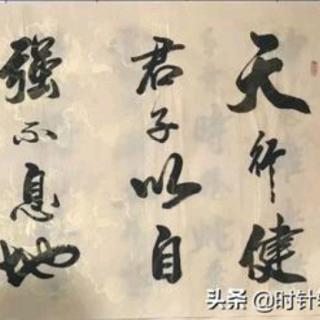 天行健
君子以自
强不息地
头条 @时针